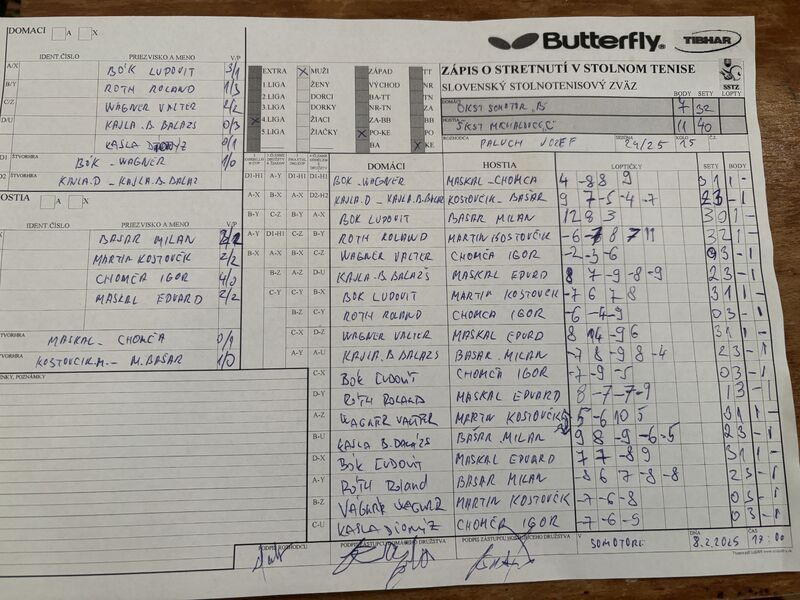 DOMACI A X
Butterfly TIBHAR
IDENT.ČÍSLO PRIEZVISKO A MENO V/P
A/X BÓK LUDOVIT 3/1
B/Y ROTH ROLAND 1/3
C/Z WAGNER VALTER 2/2
D/U KAJLA.B.BALAZS 0/3
KAJLA 0/1
D1 ŠTVORHRA BÓK - WAGNER 1/0
D2 ŠTVORHRA KAJLA.D - KAJLA.B.BALAZ
HOSTIA A X
IDENT.ČÍSLO PRIEZVISKO A MENO V/P
BASAR MILAN
MARTIN KOSTOVČIK 2/2
CHOMČA IGOR 4/0
MASKAL EDUARD 2/2
ŠTVORHRA MASKAL - CHOMČA 0/1
ŠTVORHRA KOSTOVCIK.M - M.BAŠAR 1/0
POZNÁMKY
EXTRA X MUŽI ZÁPAD TT
1.LIGA ŽENY VÝCHOD NR
2.LIGA DORCI BA-TT TN
3.LIGA DORKY NR-TN ZA
X 4.LIGA ŽIACI ZA-BB BB
5.LIGA ŽIAČKY X PO-KE PO
BA X KE
ZÁPIS O STRETNUTÍ V STOLNOM TENISE
SLOVENSKÝ STOLNOTENISOVÝ ZVÄZ
SSTZ
BODY SETY LOPTY
DOMÁCI OKST SOMOTOR "B" 7 32
HOSTIA 11 40
ROZHODCA PALUCH JOZEF SEZÓNA 24/25 KOLO 15 Č.
DOMÁCI HOSTIA LOPTIČKY SETY BODY
D1-H1 A-Y D1-H1 D1-H1 BOK - WAGNER MASKAL - CHOMCA 4 -8 8 9 3 1 1 -
A-X B-X A-X D2-H2 KAJLA.D - KAJLA.B.BALAZ KOSTOVCIK - BAŠAR 9 7 -5 -4 -7 2 3 - 1
B-Y C-Z B-Y A-X BOK LUDOVIT BASAR MILAN 12 8 3 3 0 1 -
A-Y D1-H1 C-Z B-Y ROTH ROLAND MARTIN KOSTOVČIK 3 2 1 -
B-X A-X B-X C-Z WAGNER VALTER CHOMČA IGOR -2 -3 -6 0 3 - 1
B-Z A-Z D-U KAJLA.B.BALAŽS MASKAL EDUARD 8 7 -9 -8 -9 2 3 - 1
C-Y C-Y B-X BOK LUDOVIT MARTIN KOSTOVČIK -7 6 7 8 3 1 1 -
B-Z C-Y ROTH ROLAND CHOMČA IGOR -6 -4 -9 0 3 - 1
C-X D-Z WAGNER VALTER MASKAL EDUARD 8 14 -9 6 3 1 1 -
A-Y A-U KAJLA.B.BALAZS BASAR.MILAN -7 8 -9 8 -4 2 3 - 1
C-X BÓK ĽUDOVÍT CHOMČA IGOR -7 -9 -5 0 3 - 1
D-Y RÓTH ROLAND MASKAL EDVARD 8 -7 -7 -9 1 3 - 1
A-Z WAGNER VALTER MARTIN KOSTOVČIK 5 -6 10 5 3 1 1 -
B-U KAJLA B.BALÁZS BAŠAR MILAN 9 8 -9 -6 -5 2 3 - 1
D-X BÓK ĽUDOVÍT MASKAL EDUARD 7 7 -8 9 3 1 1 -
A-Y RÓTH Roland BASAR MILAN -8 6 7 -8 -8 2 3 - 1
B-Z MARTIN KOSTOVČIK -7 -6 -8 0 3 - 1
C-U KAJLA DIONÝZ CHOMČA IGOR -7 -6 -9 0 3 - 1
PODPIS ROZHODCU PODPIS ZÁSTUPCU DOMÁCEHO DRUŽSTVA PODPIS ZÁSTUPCU HOSŤUJÚCEHO DRUŽSTVA V SOMOTORE DŇA 8.2.2025 ČAS 17:00